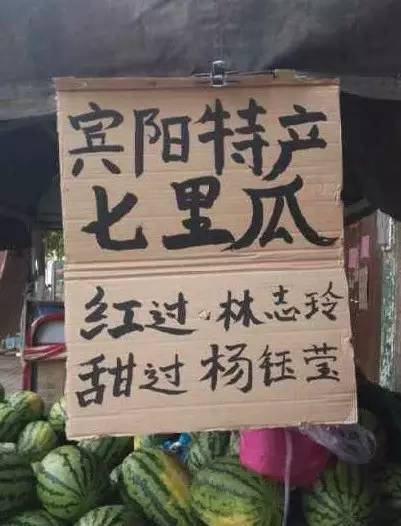 宾阳特产
七里瓜
红过林志玲
甜过杨钰莹